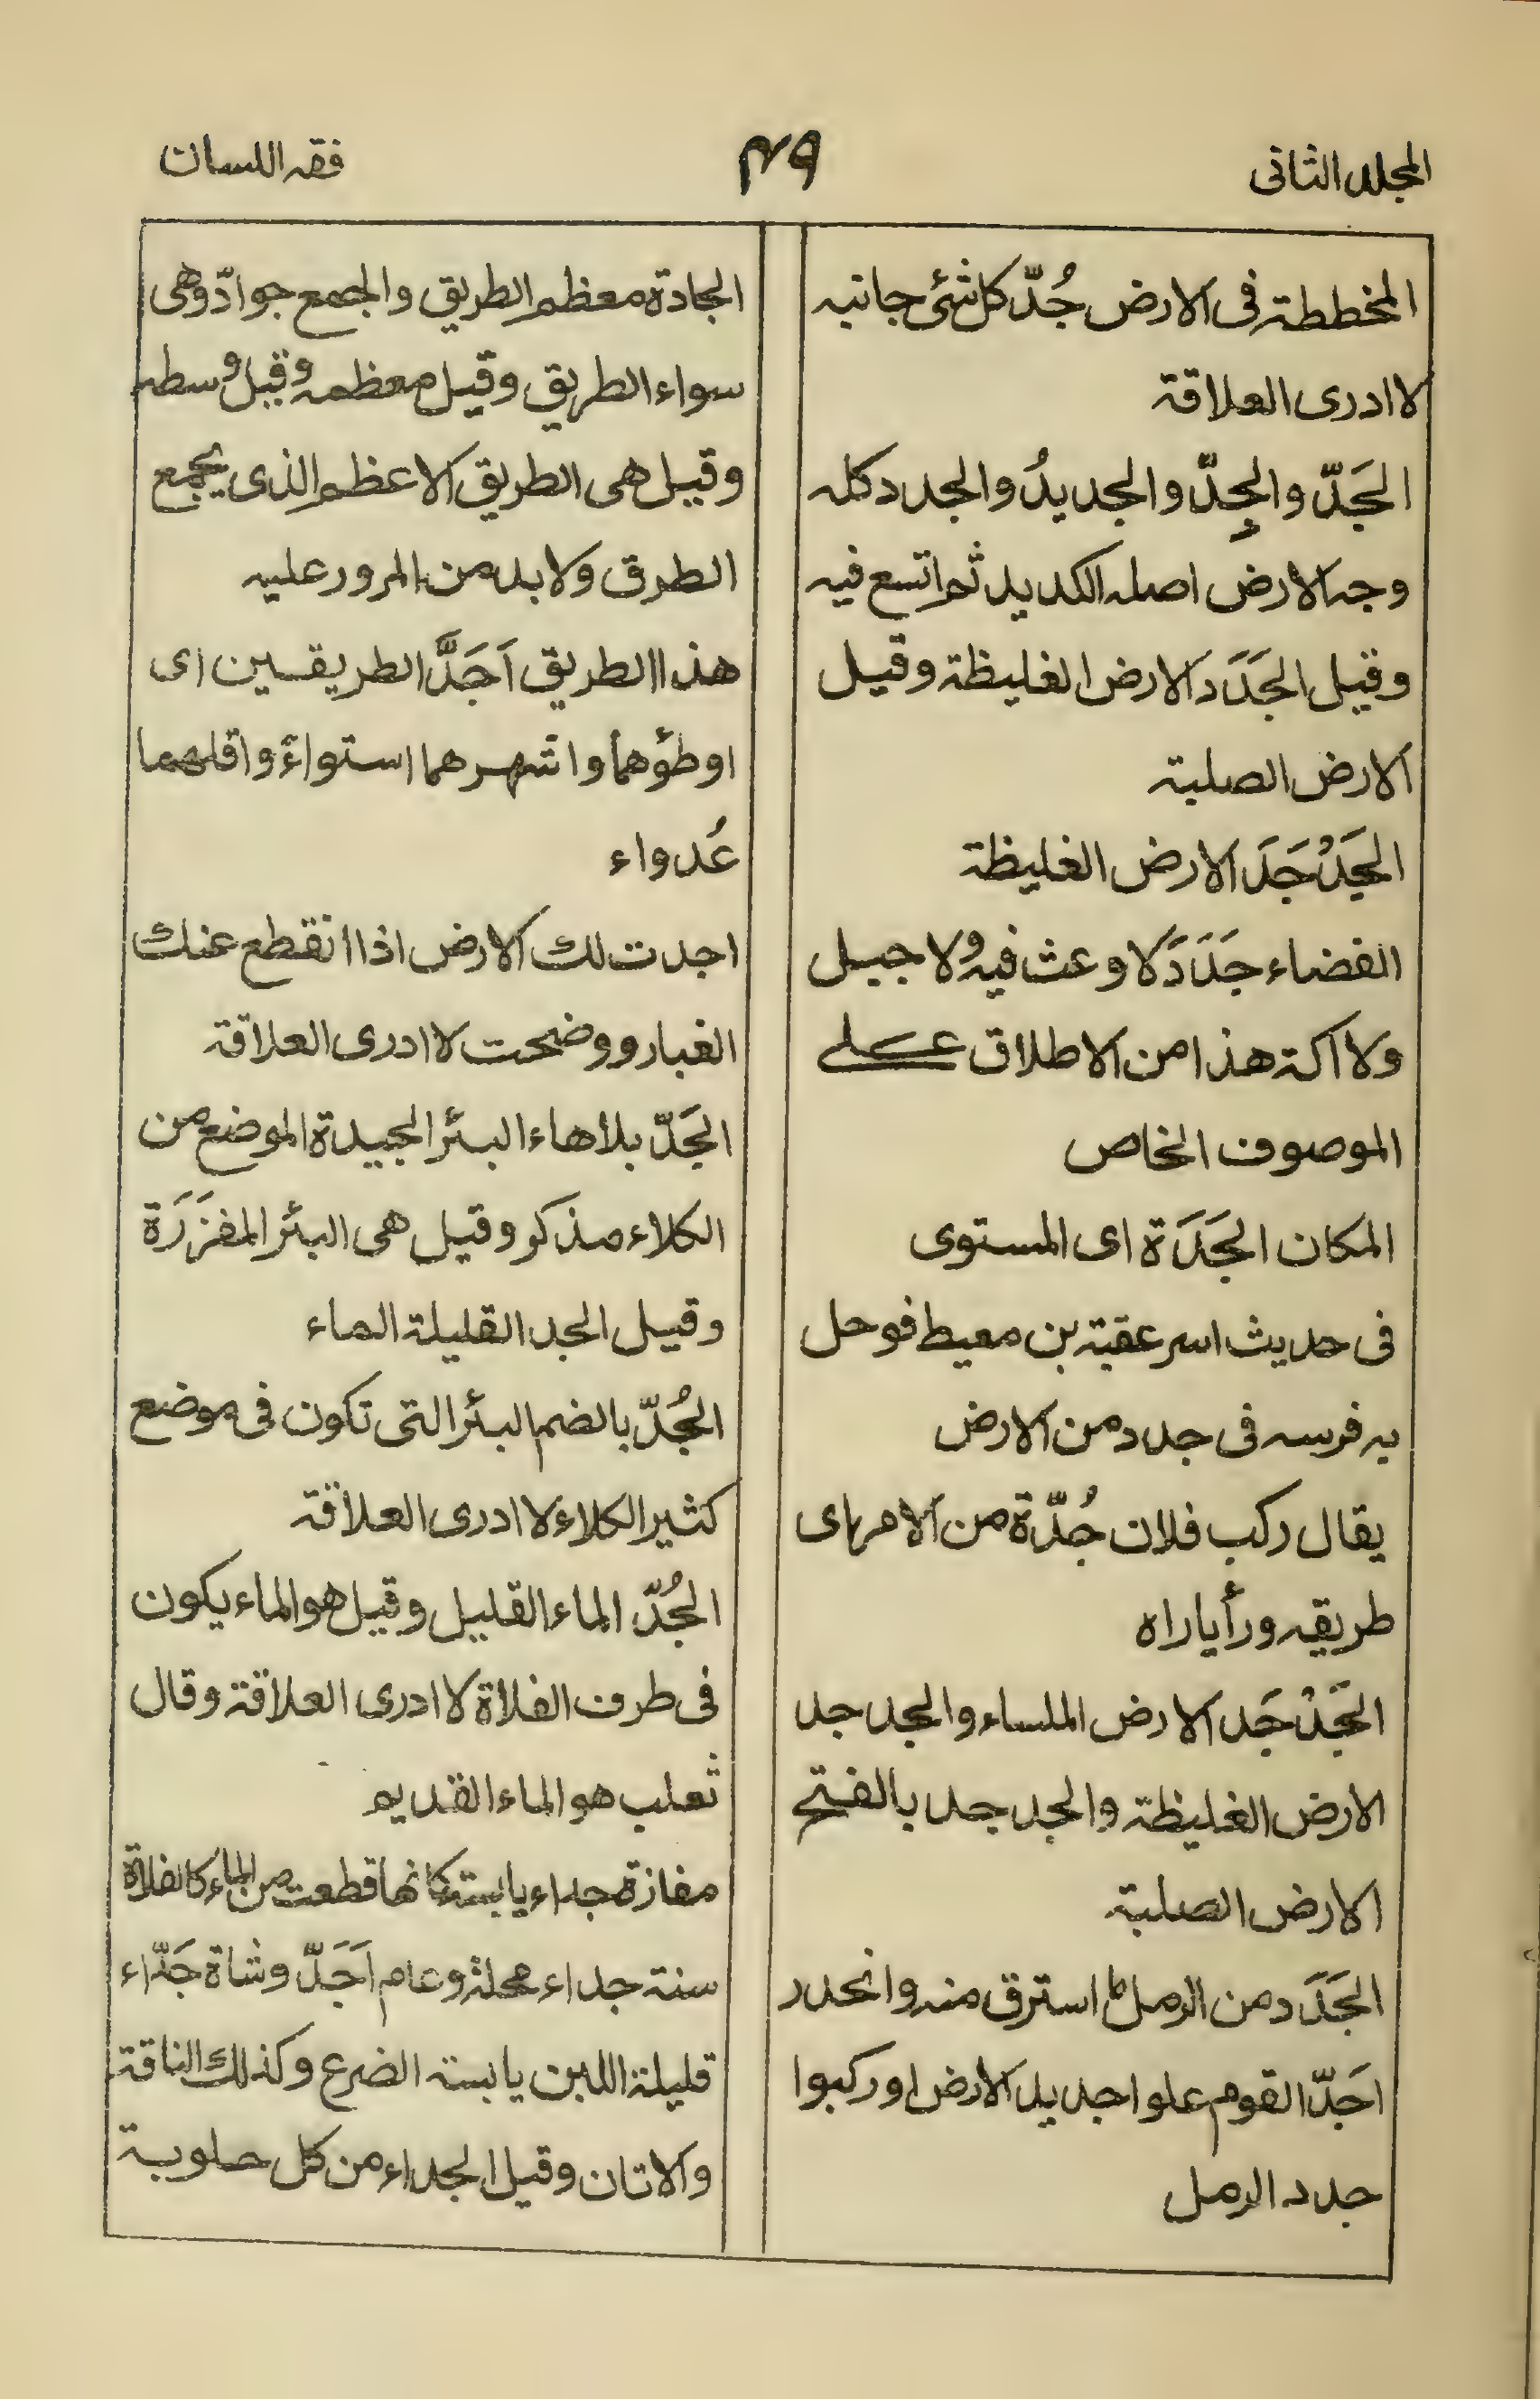 المجلد الثانى
٤٩
فقه اللسان
المخططة فى الارض جُدّ كل شئ جانبه
لا ادرى العلاقة
الجَدّ والجِدّ والجديدُ والجدد كله
وجه الارض اصله الكديد ثم اتسع فيه
وقيل الجَدَد الارض الغليظة وقيل
الارض الصلبة
الجَدْجَدَ الارض الغليظة
الفضاء جَدَدَ لا وعث فيه ولا جبل
ولا اكة هذا من الاطلاق على
الموصوف الخاص
المكان الجَدَدَة اى المستوى
فى حديث اسر عقبة بن معيط فوحل
به فرسه فى جدد من الارض
يقال ركب فلان جُدّة من الامر اى
طريقه ورأيا راه
الجَدْجَد الارض الملساء والجدجد
الارض الغليظة والجدجد بالفتح
الارض الصلبة
الجَدَد من الرمل ما استرق منه وانحدر
اجَدّ القوم علوا جديد الارض او ركبوا
جدد الرمل
الجادة معظم الطريق والجمع جوادّ وهى
سواء الطريق وقيل معظمه وقيل وسطه
وقيل هى الطريق الاعظم الذى يجمع
الطرق ولا بد من المرور عليه
هذا الطريق اَجَدَّ الطريقين اى
اوطؤهما واشهرهما استواءً واقلهما
عُدواء
اجدت لك الارض اذا انقطع عنك
الغبار ووضحت لا ادرى العلاقة
الجَدّ بلا هاء البئر الجيدة الموضع من
الكلاء مذكر وقيل هى البئر المغزَرَة
وقيل الجد القليلة الماء
الجُدّ بالضم البئر التى تكون فى موضع
كثير الكلاء لا ادرى العلاقة
الجُدّ الماء القليل وقيل هو الماء يكون
فى طرف الفلاة لا ادرى العلاقة وقال
ثعلب هو الماء القديم
مفازة جداء يابسته كانها قطعت من الماء كالفلاة
سنة جداء محلة وعام اَجَدّ وشاة جَدّاء
قليلة اللبن يابسته الضرع وكذلك الناقة
والاتان وقيل الجداء من كل حلوبة